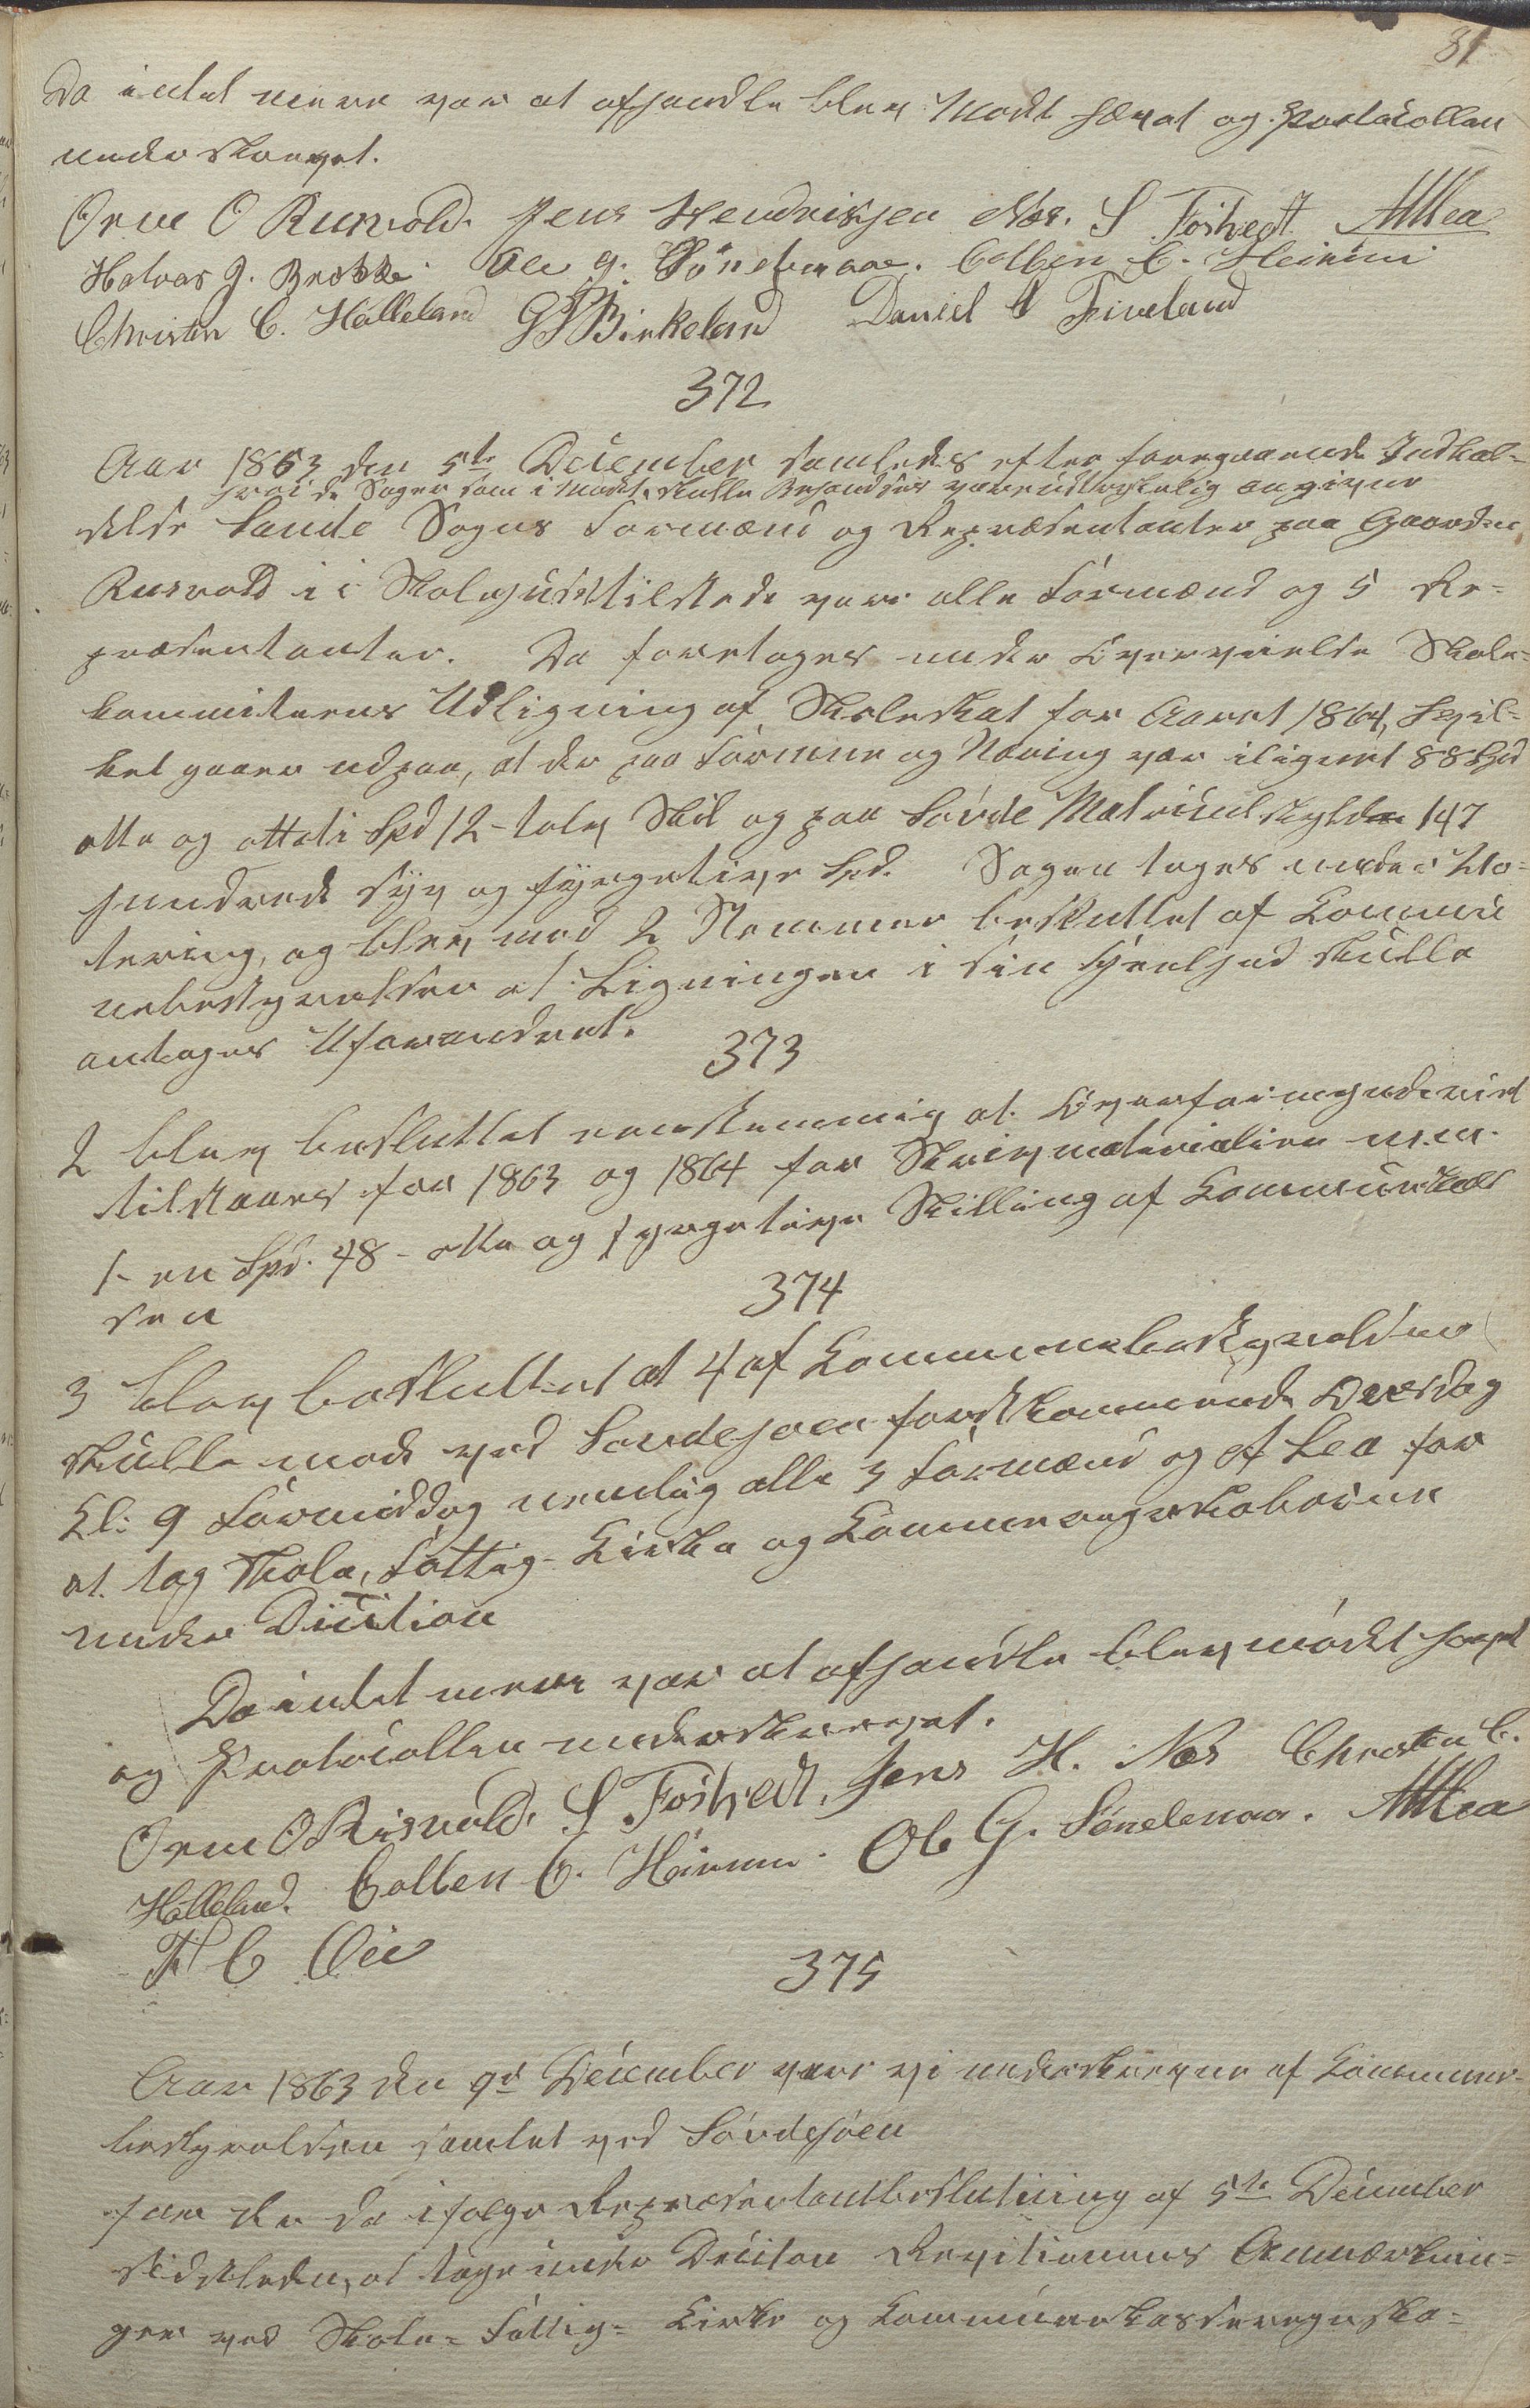 81
Da intet mere var at afhandle blev Mødt hævet og Protocollen
underskrevet.
Orm O Risvold. Jens Hendriksen Næs. S Fostvedt AHLea
Halvor J. Brokke. Ole G. Söndenaae. Colben C. Heimni
Christen C. Hålleland GGBirkeland Daniel Fiveland
372
Aar 1863 den 5te December samledes efter foregaaende Indkal-
hvori de Sager som i Mødt skulle Behandles vare udtrykkelig angivne
delse Saude Sogns Formænd og Repræsentanter paa Gaarden
Risvold i i Skolehuset tilstede vare alle Formænd og 5 Re-
præsentanter. Da foretages under Overveielse Skole-
kommiteens Udligning af Skoleskat for Aaret 1864, hvil-
ket gaaer udpaa, at der paa Formue og Næring var ilignet 88 Spd
otte og otteti Spd 12 - tolv Skil og paa Søvde Matriculskylden 147
hundrede syv og fyrgetive Spd. Sagen toges under Vo-
tering, og blev med 2 Stemmer besluttet af Kommu
nebestyrelsen at Ligningen i sin Heelhed skulle
antages Uforandret.
373
2 blev besluttet eenstemmig at Overformynderiet
tilstaaes for 1863 og 1864 for Skrivmaterialier m.m.
1 - en Spd. 48 - otte og fyrgetive Skilling af Kommunekas
sen
374
3 blev besluttet at 4 af Kommunebestyrelsen
skulle møde ved Sovdesøen førstkommende Onsdag
Kl: 9 Formiddag nemlig alle 3 Formænd og A Lea for
at tag Skole, Fattig- Kirke og Kommuneregnskaberne
under Dicition
Da intet mere var at afhandle blev mødet hævet
og Protocollen underskrevet.
Orm O Risvold. S Fostvedt. Jens H. Næs Christen C.
Hålleland. Colben C. Heimni. Ole G. Söndenaa. AHLea
H C Øie
375
Aar 1863 den 9d December vare vi underskrevne af Kommune-
bestyrelsen samlet ved Søvdesøen
for der da ifølge Repræsentantbeslutning af 5te December
sidstleden, at tage under Decition Revitionens Anmærknin-
ger ved Skole- Fattig- Kirke og Kommunekasseregnska-